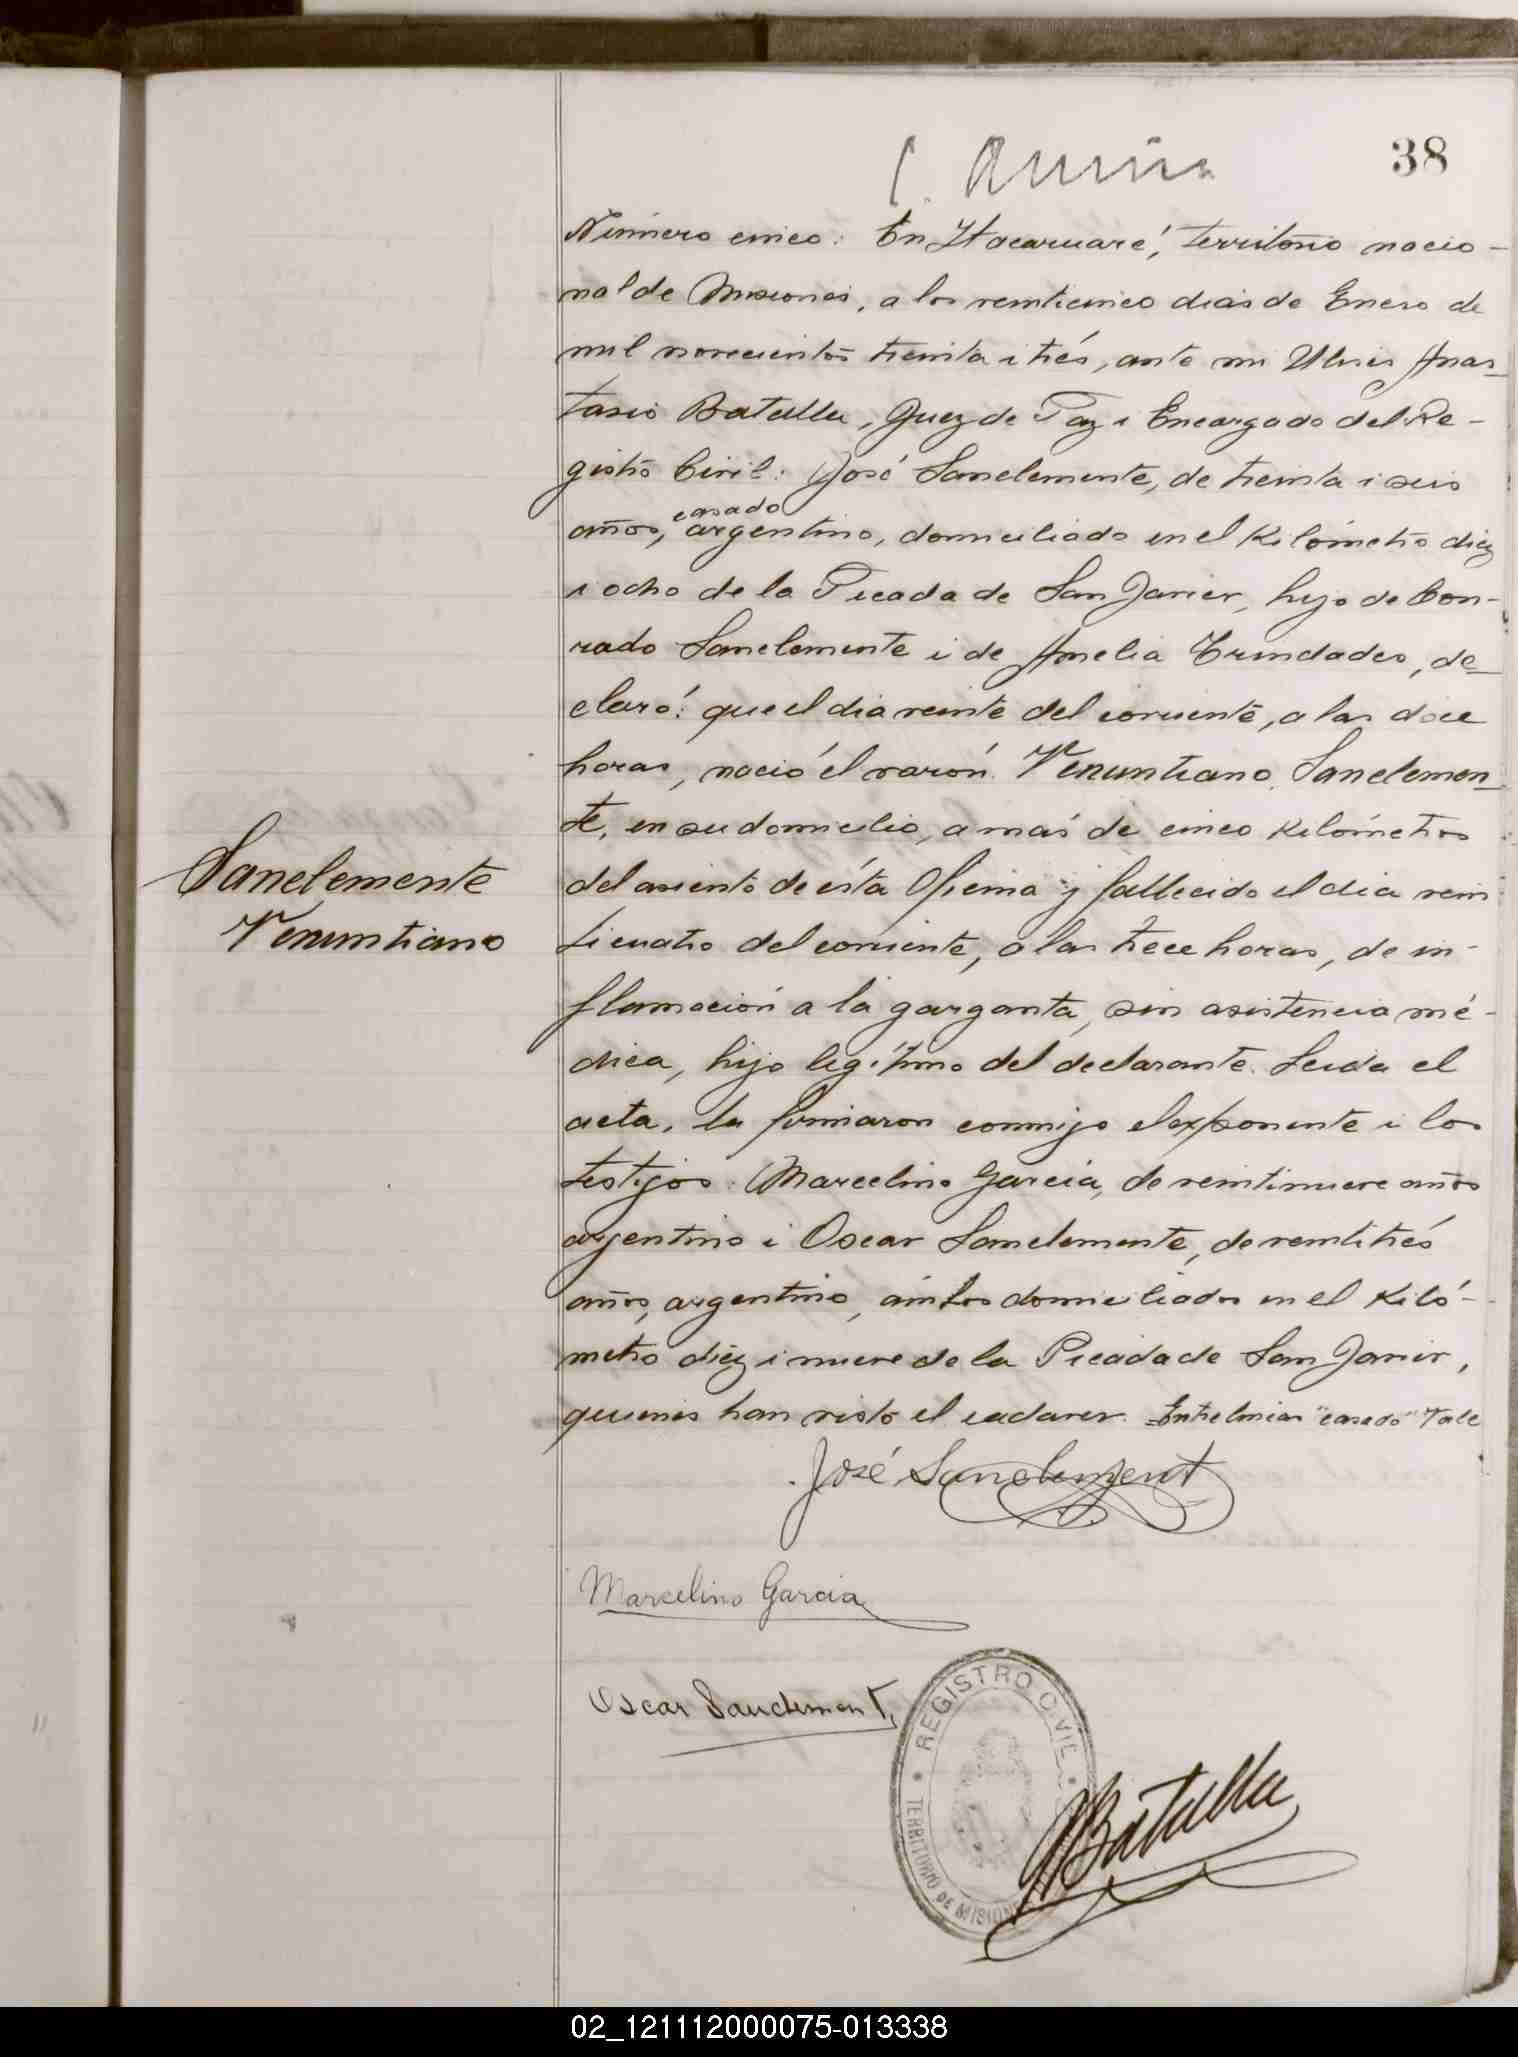 38
Número cinco: En Itacaruaré, territorio nacio-
nal de Misiones, a los veinticinco dias de Enero de
mil novecientos treinta i trés, ante mi Ulises Anas-
tasio Batalla, Juez de Paz i Encargado del Re-
gistro Civil: José Sanclemente, de treinta i seis
casado
años, argentino, domiciliado en el Kilómetro diez
i ocho de la Picada de San Javier, hijo de Con-
rado Sanclemente i de Amelia Trindades, de-
claró: que el dia veinte del corriente, a las doce
horas, nació el varón Venuntiano Sanclemen-
te, en su domicilio, a mas de cinco Kilómetros
del asiento de ésta Oficina y fallecido el dia vein
ticuatro del corriente, a las trece horas, de in-
flamación a la garganta, sin asistencia mé-
dica, hijo legítimo del declarante. Leida el
acta, la firmaron conmigo el exponente i los
testigos: Marcelino Garcia, de veintinueve años
argentino i Oscar Sanclemente, de veintitrés
años, argentino, ámbos domiciliados en el Kiló-
metro diez i nueve de la Picada de San Javier,
quienes han visto el cadaver. Entrelineas "casado" Vale
Sanclemente
Venuntiano
José Sanclement
Marcelino Garcia
Oscar Sanclement
REGISTRO CIVIL
TERRITORIO DE MISIONES
Batalla
02_121112000075-013338